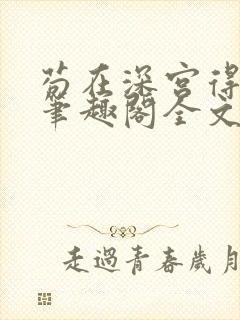 苟在深宫得
笔趣阁全文
走過青春歲月